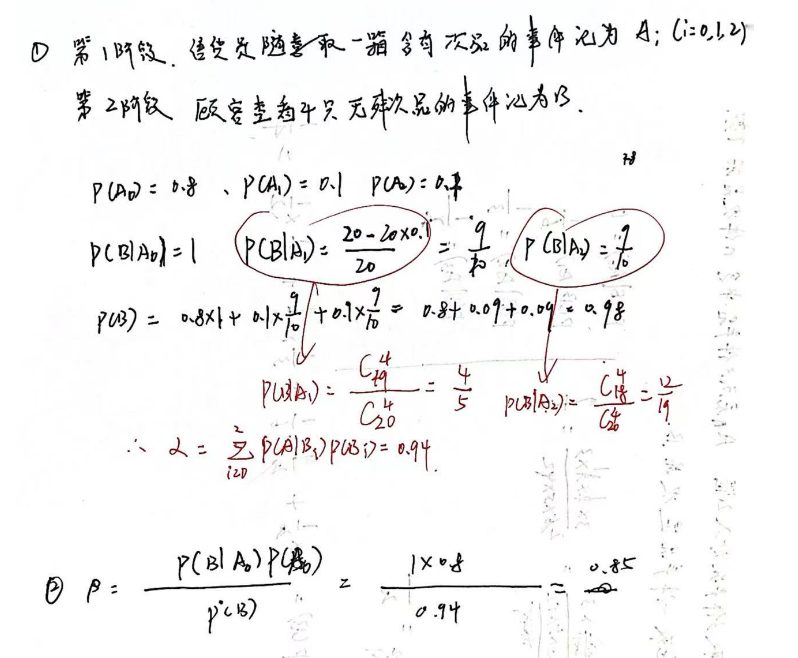 ① 第1阶段. 售货员随意取一箱含有i次品的事件记为 Ai (i=0,1,2)
第2阶段 顾客查看4只无残次品的事件记为B.
P(A₀) = 0.8 、P(A₁) = 0.1 P(A₂) = 0.1
P(B|A₀) = 1 P(B|A₁) = \frac{20-20×0.1}{20} = \frac{9}{10}, P(B|A₂) = \frac{9}{10}
P(B) = 0.8×1 + 0.1×\frac{9}{10} + 0.1×\frac{9}{10} = 0.8 + 0.09 + 0.09 = 0.98
P(B|A₁) = \frac{C_{19}^4}{C_{20}^4} = \frac{4}{5} P(B|A₂) = \frac{C_{18}^4}{C_{20}^4} = \frac{12}{19}
∴ α = \sum_{i=0}^{2} P(A|B_i)P(B_i) = 0.94.
② β = \frac{P(B|A₀)P(A₀)}{P(B)} = \frac{1×0.8}{0.94} = 0.85